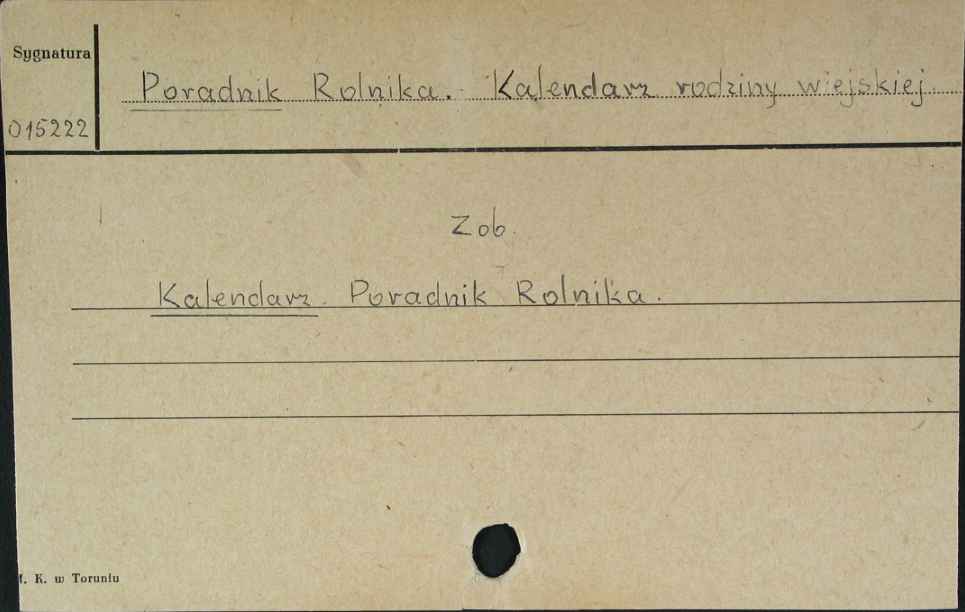 Sygnatura
Poradnik Rolnika. Kalendarz rodziny wiejskiej.
015222
Zob.
Kalendarz. Poradnik Rolnika.
K. w Toruniu